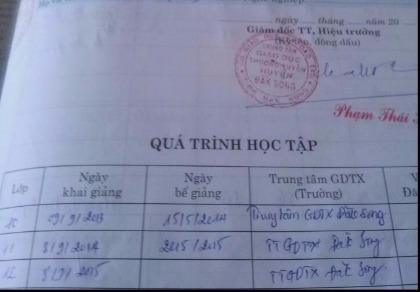 ngày ........ tháng ........ năm 20
Giám đốc TT, Hiệu trưởng
(Ký tên, đóng dấu)
TRUNG TÂM
GIÁO DỤC
THƯỜNG XUYÊN
HUYỆN
ĐĂK SONG
Phạm Thái
QUÁ TRÌNH HỌC TẬP
Lớp Ngày khai giảng Ngày bế giảng Trung tâm GDTX (Trường)
10 09/9/2013 15/5/2014 Trung tâm GDTX Đăk Song
11 5/9/2014 20/5/2015 TT GDTX Đăk Song
12 5/9/2015 TTGDTX Đăk Song